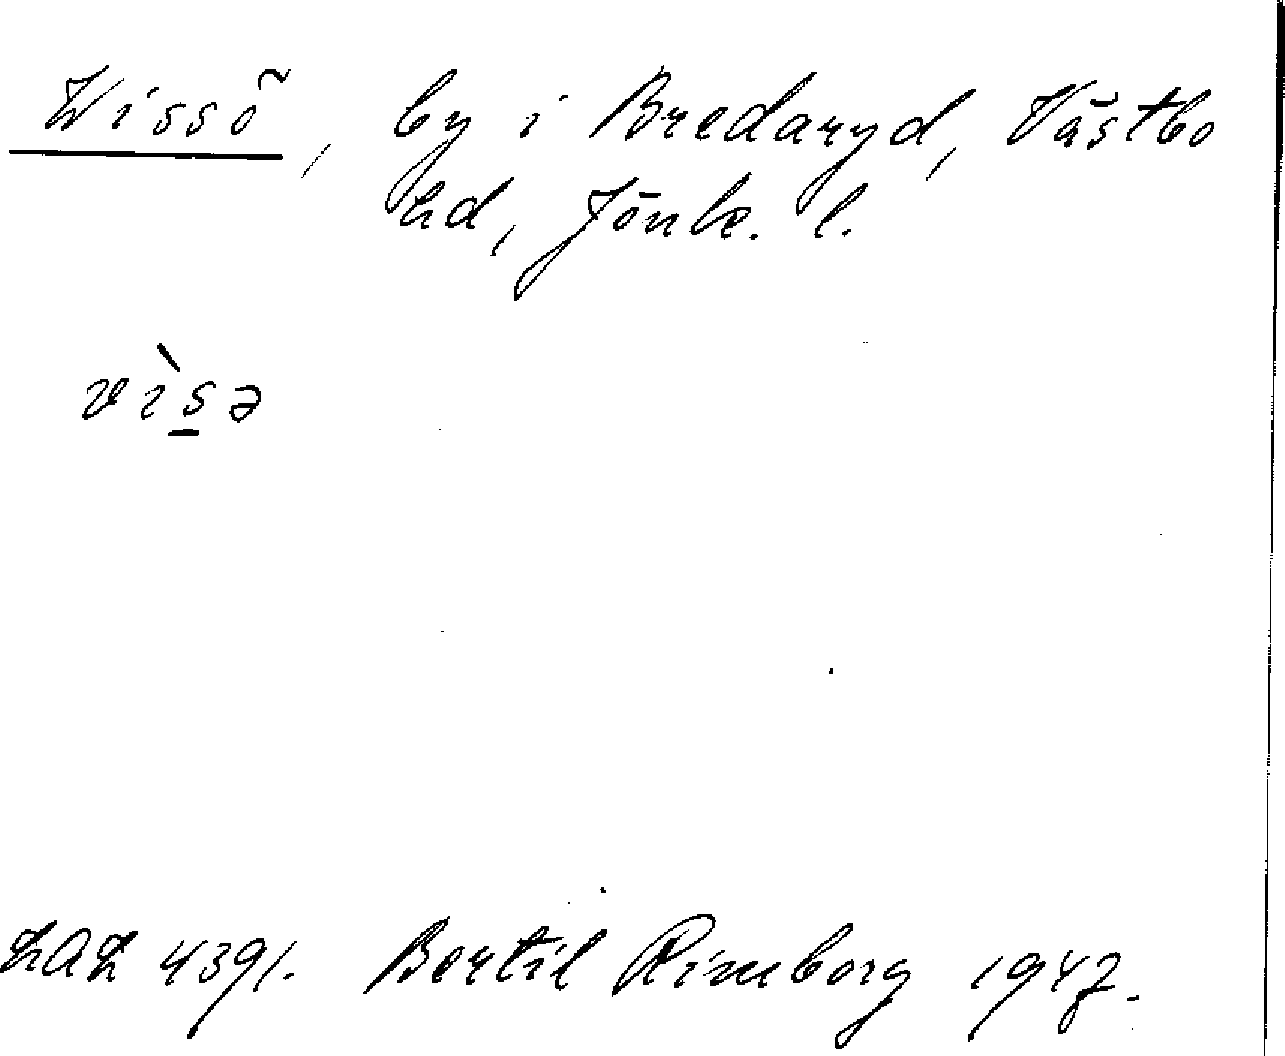 Wissö, by i Bredaryd, Västbo
hd, Jönk. l.
vìs̲ə
LAL 4391. Bertil Rimborg 1947.